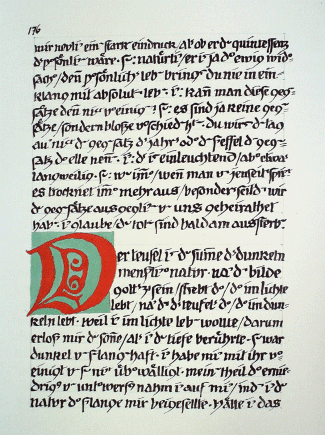 176
mir nevli ein starke eindruck, als ob er d quintessenz
d persönli wäre. s: natürli, er i ja d ewig wid-
sach, den persönlich leb bring du nie in ein-
klang mit absolut leb. i: kan man diese geg-
sätze den ni v einig? s: es sind ja keine geg-
sätze, sondern blosze v schied h. du wirst d tag
au ni d gegsatz d jahr od d scheffel d geg-
satz d elle nen. i: d i einleuchtend, ab etwas
langweilig. s: w im, wen man v jenseit spri.
es trocknet im mehr aus, besonder seid wir
d gegsätze ausgegli v uns geheirathet
hab. i glaube, d tot sind bald am aussterb.
Der teufel i d sume d dunkeln
menschli natur. na d bilde
gott z sein, strebt d, d im lichte
lebt, na d d teufel d, d im dun-
keln lebt. weil i im lichte leb wollte, darum
erlosch mir d sone, als i d tiefe berührte. s war
dunkel v slang haft. i habe mi mit ihr v
einigt v s ni übwältigt. mein theil d ernie-
drig v unterwerf nahm i auf mi, ind i d
natur d slange mir beigesellte. hätte i das